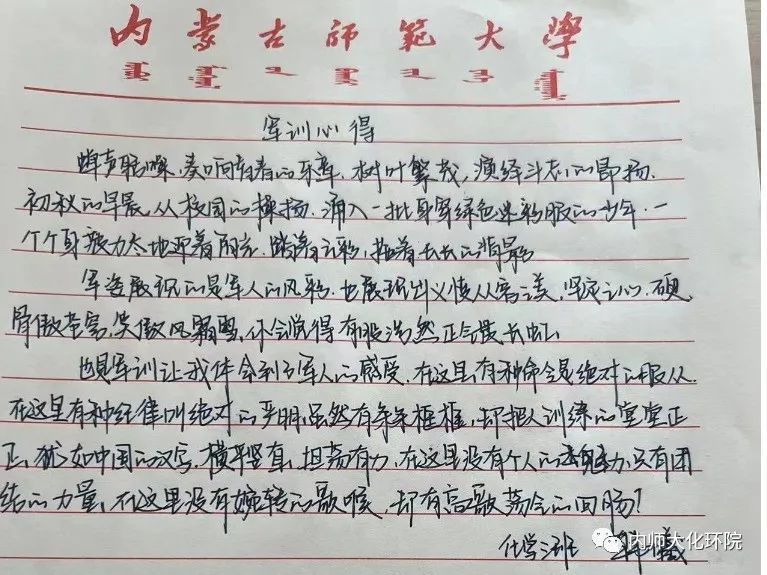 内蒙古师范大学
军训心得
蝉声聒噪，奏响青春的乐章，树叶繁茂，演绎斗志的昂扬，
初秋的早晨，从校园的操场，涌入一批身穿绿色迷彩服的少年，一
个个身 力 地 着 ，踏着 彩，拖着长长的背影。
军姿展现的是军人的风彩，也展现出 从容 美，坚定 心，硬
骨傲苍穹，笑傲风霜雪，你会觉得有股浩然正气 长虹。
也是军训让我体会到了军人的感受，在这里有种命令是绝对的服从，
在这里有种纪律叫绝对的严明，虽然有条条框框，却把人训练的堂堂正
正，犹如中国的汉字，横平竖直，坦荡有力，在这里没有个人的 魅力，只有团
结的力量，在这里没有婉转的歌喉，却有高歌荡 的回肠！
化学 班
内师大化环院